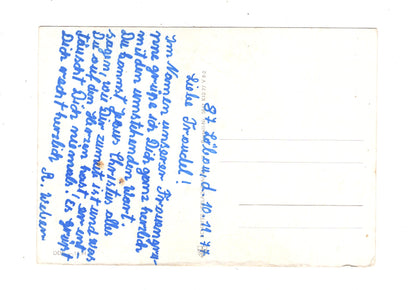 87 Löbau, d. 10.11.77
Liebe Traudel!
Im Namen unserer Frauengru-
ppe grüße ich Dich ganz herzlich
mit dem umstehenden Wort.
Du kannst Jesus Christus alles
sagen, wie Dir zumute ist und was
Du auf dem Herzen hast, er ent-
täuscht Dich niemals. Es grüßt
Dich recht herzlich R. Weber